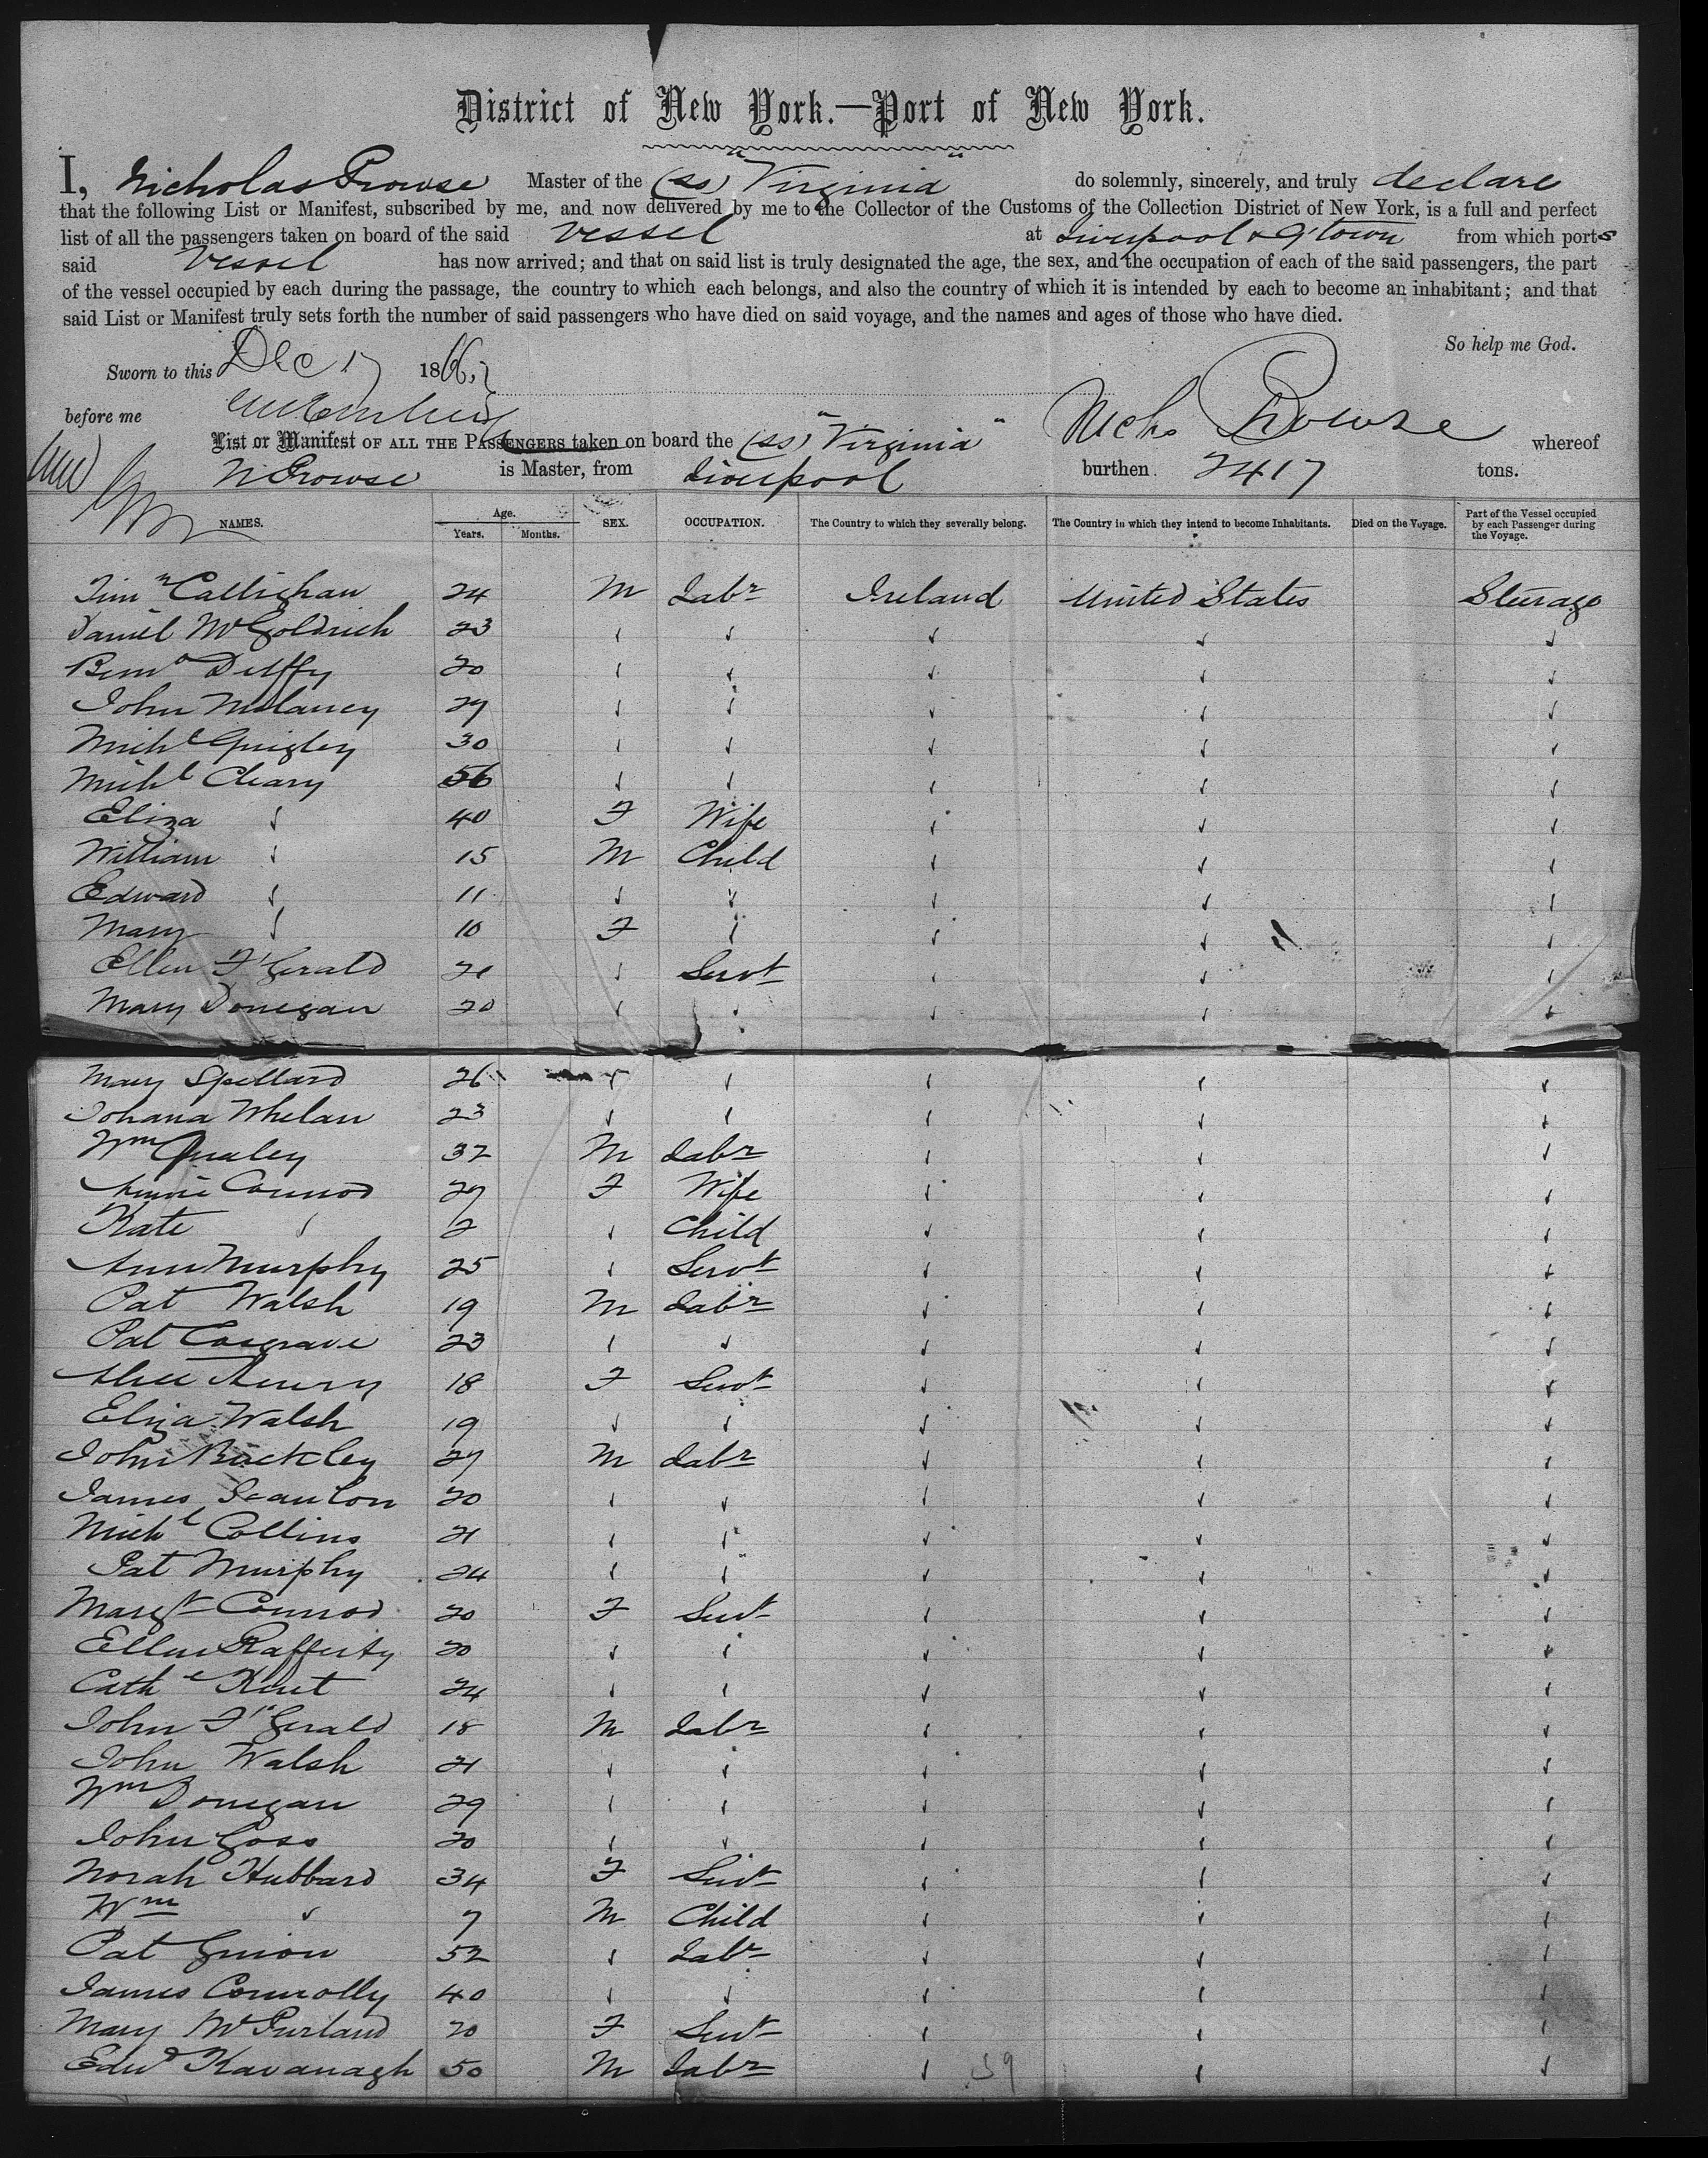 District of New York.—Port of New York.
I, Nicholas Prowse Master of the (ss) "Virginia" do solemnly, sincerely, and truly declare
that the following List or Manifest, subscribed by me, and now delivered by me to the Collector of the Customs of the Collection District of New York, is a full and perfect
list of all the passengers taken on board of the said vessel at Liverpool & Qtown from which ports
said Vessel has now arrived; and that on said list is truly designated the age, the sex, and the occupation of each of the said passengers, the part
of the vessel occupied by each during the passage, the country to which each belongs, and also the country of which it is intended by each to become an inhabitant; and that
said List or Manifest truly sets forth the number of said passengers who have died on said voyage, and the names and ages of those who have died.
So help me God.
Sworn to this Dec 17 1866,
before me Nichs Prowse
List or Manifest OF ALL THE PASSENGERS taken on board the (ss) "Virginia" whereof
N Prowse is Master, from Liverpool burthen 2417 tons.
NAMES. Age. Years. Months. SEX. OCCUPATION. The Country to which they severally belong. The Country in which they intend to become Inhabitants. Died on the Voyage. Part of the Vessel occupied by each Passenger during the Voyage.
Callighan 24 M Labr Ireland United States Steerage
Daniel McGoldrich 23
Duffy 20
John Mulaney 27
Michl Quigley 30
Michl Cleary 56
Eliza 40 F Wife
William 15 M Child
Edward 11
Mary 10 F
Ellen F'Gerald 21 Servt
Mary Donegan 20
Mary Spellard 26
Johana Whelan 23
Wm Qualey 32 M Labr
Annie Connor 27 F Wife
Kate 2 Child
Ann Murphy 25 Servt
Pat Walsh 19 M Labr
Pat Cosgrave 23
Alice 18 F Servt
Eliza Walsh 19
John Buckley 27 M Labr
James Scanlon 20
Michl Collins 21
Pat Murphy 24
Margt Connor 20 F Servt
Ellen Rafferty 20
Cathe Kent 24
John F'Gerald 18 M Labr
John Walsh 21
Wm Donegan 29
John Goss 20
Norah Hubbard 34 F Servt
Wm 7 M Child
Pat Guion 52 Labr
James Connolly 40
Mary McPurland 20 F Servt
Edwd Kavanagh 50 M Labr
39